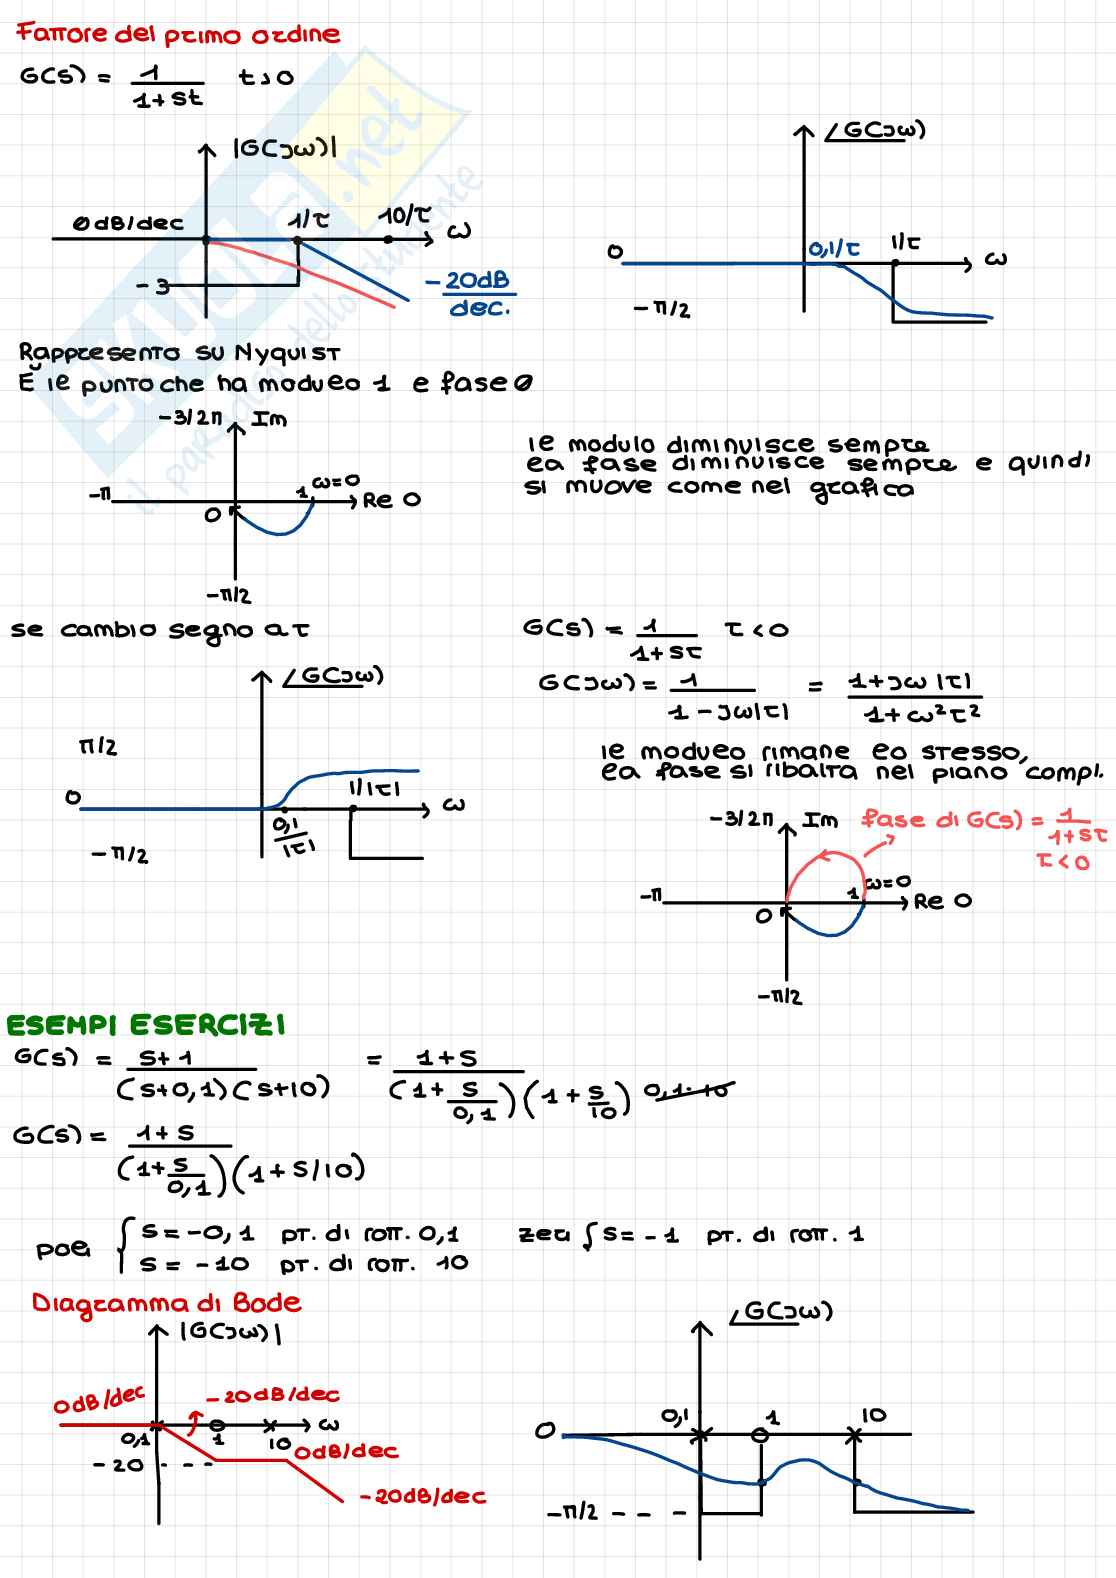 Fattore del primo ordine
G(s) = 1/(1+st) t>0
|G(jω)|
0dB/dec 1/τ 10/τ ω
-3
-20dB/dec.
∠G(jω)
0 0,1/τ 1/τ ω
-π/2
Rappresento su Nyquist
È il punto che ha modulo 1 e fase 0
-3/2π Im
-π 0 1 ω=0 Re 0
-π/2
il modulo diminuisce sempre
la fase diminuisce sempre e quindi
si muove come nel grafica
se cambio segno a τ
G(s) = 1/(1+sτ) τ<0
G(jω) = 1/(1-jω|τ|) = (1+jω|τ|)/(1+ω²τ²)
∠G(jω)
π/2
0 0,1/|τ| 1/|τ| ω
-π/2
il modulo rimane lo stesso,
la fase si ribalta nel piano compl.
-3/2π Im fase di G(s) = 1/(1+sτ)
τ<0
-π 0 1 ω=0 Re 0
-π/2
ESEMPI ESERCIZI
G(s) = (s+1)/((s+0,1)(s+10)) = (1+s)/((1+s/0,1)(1+s/10) 0,1·10)
G(s) = (1+s)/((1+s/0,1)(1+s/10))
poli { s=-0,1 pt. di rott. 0,1
s=-10 pt. di rott. 10
zeri { s=-1 pt. di rott. 1
Diagramma di Bode
|G(jω)|
0dB/dec -20dB/dec
0,1 1 10 ω
-20 0dB/dec
-20dB/dec
∠G(jω)
0 0,1 1 10
-π/2
SKUOLA.net
il paradiso dello studente